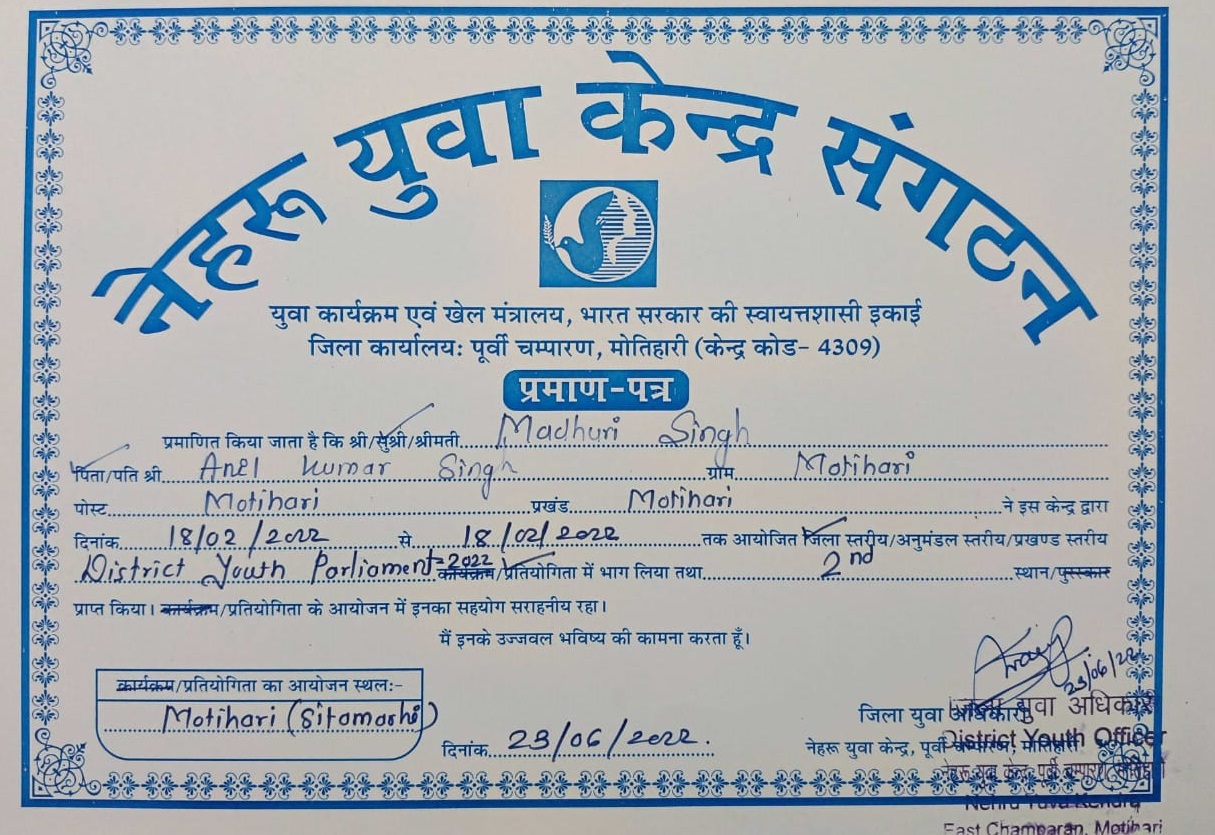 नेहरू युवा केन्द्र संगठन
युवा कार्यक्रम एवं खेल मंत्रालय, भारत सरकार की स्वायत्तशासी इकाई
जिला कार्यालयः पूर्वी चम्पारण, मोतिहारी (केन्द्र कोड- 4309)
प्रमाण-पत्र
प्रमाणित किया जाता है कि श्री/सुश्री/श्रीमती Madhuri Singh
पिता/पति श्री Anil Kumar Singh ग्राम Motihari
पोस्ट Motihari प्रखंड Motihari ने इस केन्द्र द्वारा
दिनांक 18/02/2022 से 18/02/2022 तक आयोजित जिला स्तरीय/अनुमंडल स्तरीय/प्रखण्ड स्तरीय
District Youth Parliament-2022 कार्यक्रम/प्रतियोगिता में भाग लिया तथा 2nd स्थान/पुरस्कार
प्राप्त किया। कार्यक्रम/प्रतियोगिता के आयोजन में इनका सहयोग सराहनीय रहा।
मैं इनके उज्जवल भविष्य की कामना करता हूँ।
कार्यक्रम/प्रतियोगिता का आयोजन स्थल:-
Motihari (Sitamarhi)
दिनांक 23/06/2022.
23/06/22
जिला युवा अधिकारी
नेहरू युवा केन्द्र, पूर्वी चम्पारण, मोतिहारी
जिला युवा अधिकारी
District Youth Officer
नेहरू युवा केन्द्र, पूर्वी चम्पारण
Nehru Yuva Kendra
East Champaran, Motihari